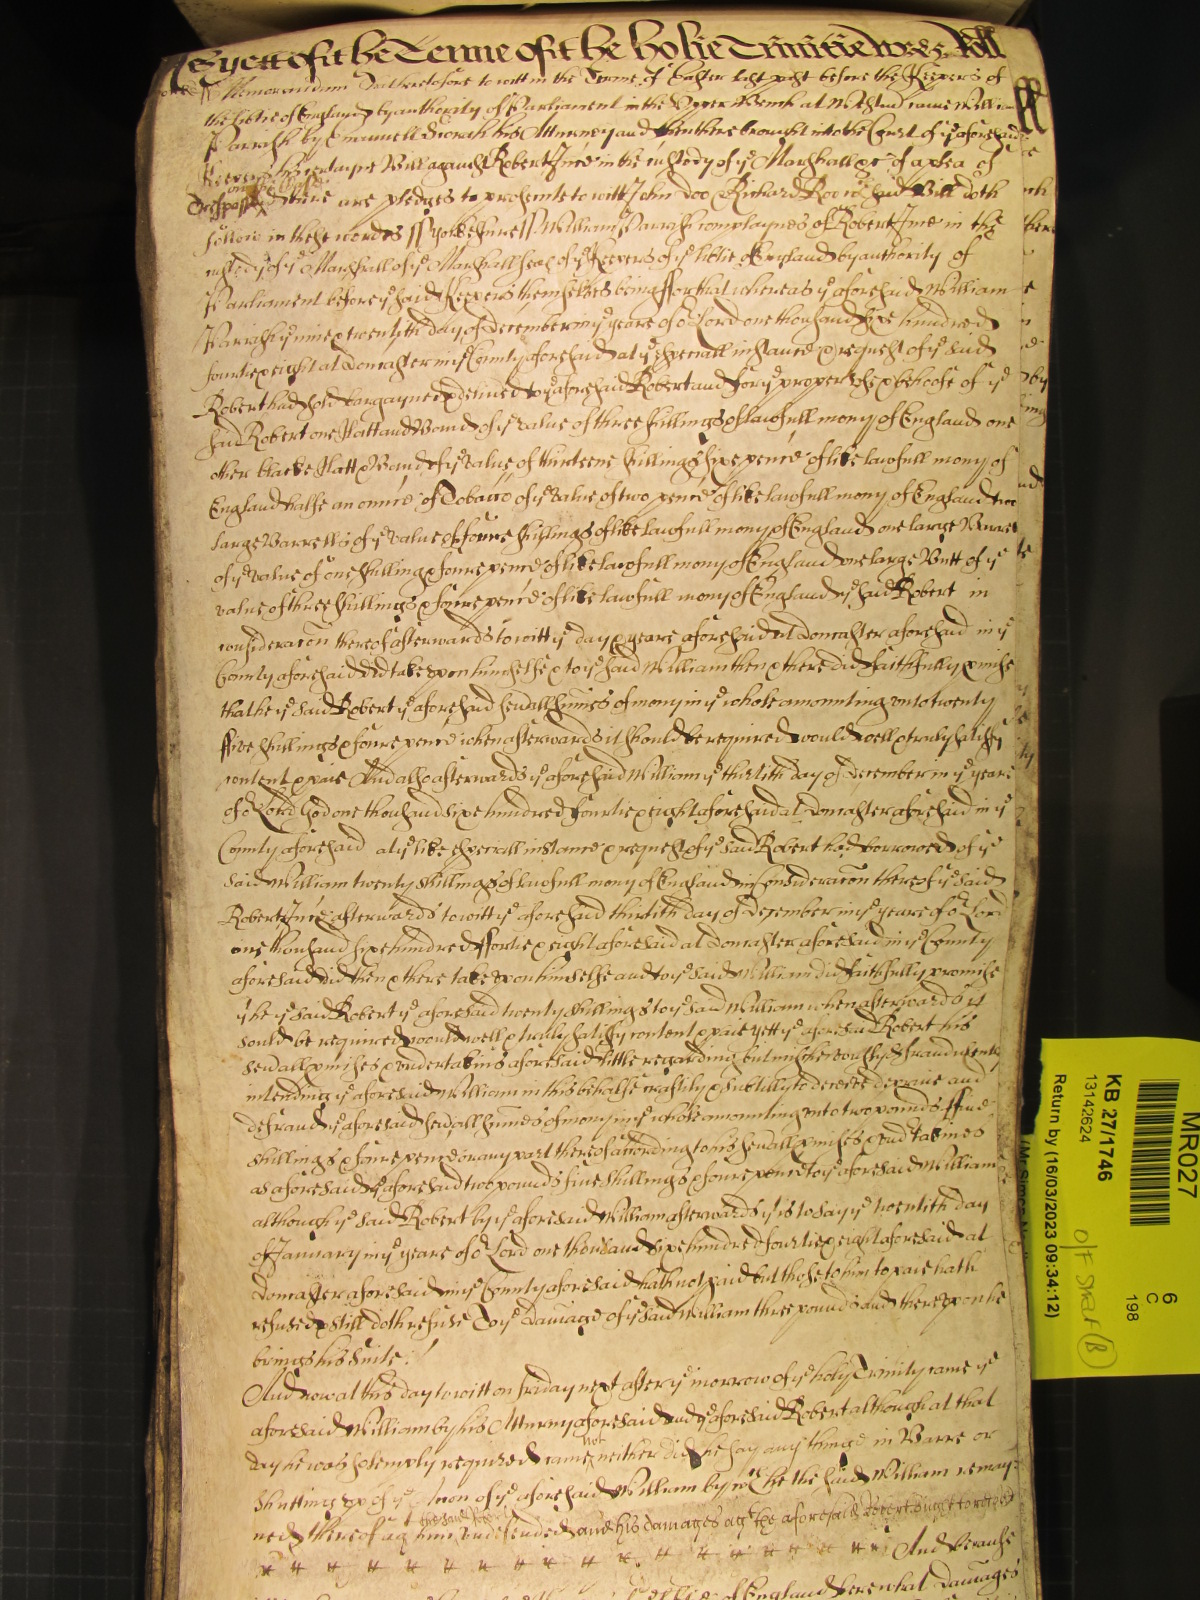 As yett of the Terme of the holie Trinitie Roll
Memorandum That heretofore to witt in the Terme of Easter last past before the Keepers of
the libtie of England by authority of Parliament in the Upper Bench at Westm came William
Parrish by Emanuell his Atturney and then there brought into the Court of ye aforesaid
Keepers his certayne Bill against Robert in the custody of ye Marshall &c of a plea of
Trespas there are pledges to prosecute to witt John Doo & Richard Roo wch said Bill doth
follow in these wordes ss yorkeshire ss William Parrish complaynes of Robert in the
custody of ye Marshall of ye Marshallsea of ye Keepers of ye libtie of England by authority of
Parliament before ye said Keepers themselves being for that whereas ye aforesaid William
Parrish ye nine & twentyth day of December in ye yeare of or Lord one thousand sixe hundred
fourtie & eight at Doncaster in ye County aforesaid at ye especiall instance & request of ye said
Robert had sold bargayned & delived to ye aforesaid Robert and for ye proper use & behoofe of ye
said Robert one Hatt and Band of ye value of three shillings of lawfull mony of England one
other blacke Hatt & Band of ye value of thirteene shillings sixe pence of like lawfull mony of
England halfe an ounce of Tobacco of ye value of two pence of like lawfull mony of England two
large Barrells of ye value of foure shillings of like lawfull mony of England one large
of ye value of one shilling & foure pence of like lawfull mony of England one large Butt of ye
value of three shillings & foure pence of like lawfull mony of England ye said Robert in
consideracon thereof afterwards to witt ye day & yeare aforesaid at Doncaster aforesaid in ye
County aforesaid did take upon himselfe & to ye said William then & there did faithfully pmise
that he ye said Robert ye aforesaid sevall summes of mony in ye whole amounting unto twenty
ffive shillings & foure pence when afterwards it should be required would well & truly satisfy
content & paie And also afterwards ye aforesaid William ye thirtith day of December in ye yeare
of or Lord God one thousand sixe hundred fourtie & eight aforesaid at Doncaster aforesaid in ye
County aforesaid at ye like especiall instance & request of ye said Robert had borrowed of ye
said William twenty shillings of lawfull mony of England in Consideracon thereof ye said
Robert afterwards to witt ye aforesaid thirtith day of December in ye yeare of or Lord
one thousand sixe hundred ffortie & eight aforesaid at Doncaster aforesaid in ye County
aforesaid did then & there take upon himselfe and to ye said William did faithfully promise
yt he ye said Robert ye aforesaid twenty shillings to ye said William when afterwards it
sould be required would well & trully satisfy content & paie yett ye aforesaid Robert his
sevall pmises & undertakins aforesaid little regarding but mischeivously & fraudulently
intending ye aforesaid William in this behalfe craftily & subtilly to deceive & and
defraud ye aforesaid sevall summes of mony in ye whole amounting unto two pounds ffive
shillings & foure pence or any part thereof according to his sevall pmises & undtakings
as aforesaid ye aforesaid two pounds five shillings & foure pence to ye aforesaid William
although ye said Robert by ye aforesaid William afterwards yt is to say ye twentith day
of January in ye yeare of or Lord one thousand sixe hundred fourtie & eight aforesaid at
Doncaster aforesaid in ye County aforesaid hath not paid but those to him to paie hath
refused & still doth refuse To ye Damage of ye said William three pounds and thereupon he
brings his suite :
And now at this day to witt on friday next after ye morrow of ye holy Trinity came ye
aforesaid William by his Atturny aforesaid and ye aforesaid Robert although at that
day he was solemply required came not neither did he say any thinge in Barre or
of ye Accon of ye aforesaid William by wch he the said William remay
neth thereof agt him the said Robert undefended and his damages agt the aforesaid Robert ought to recover
And because
of England here what damages
MR027
KB 27/1746
13142624
Return by (16/03/2023 09:34:12)
6
C
198